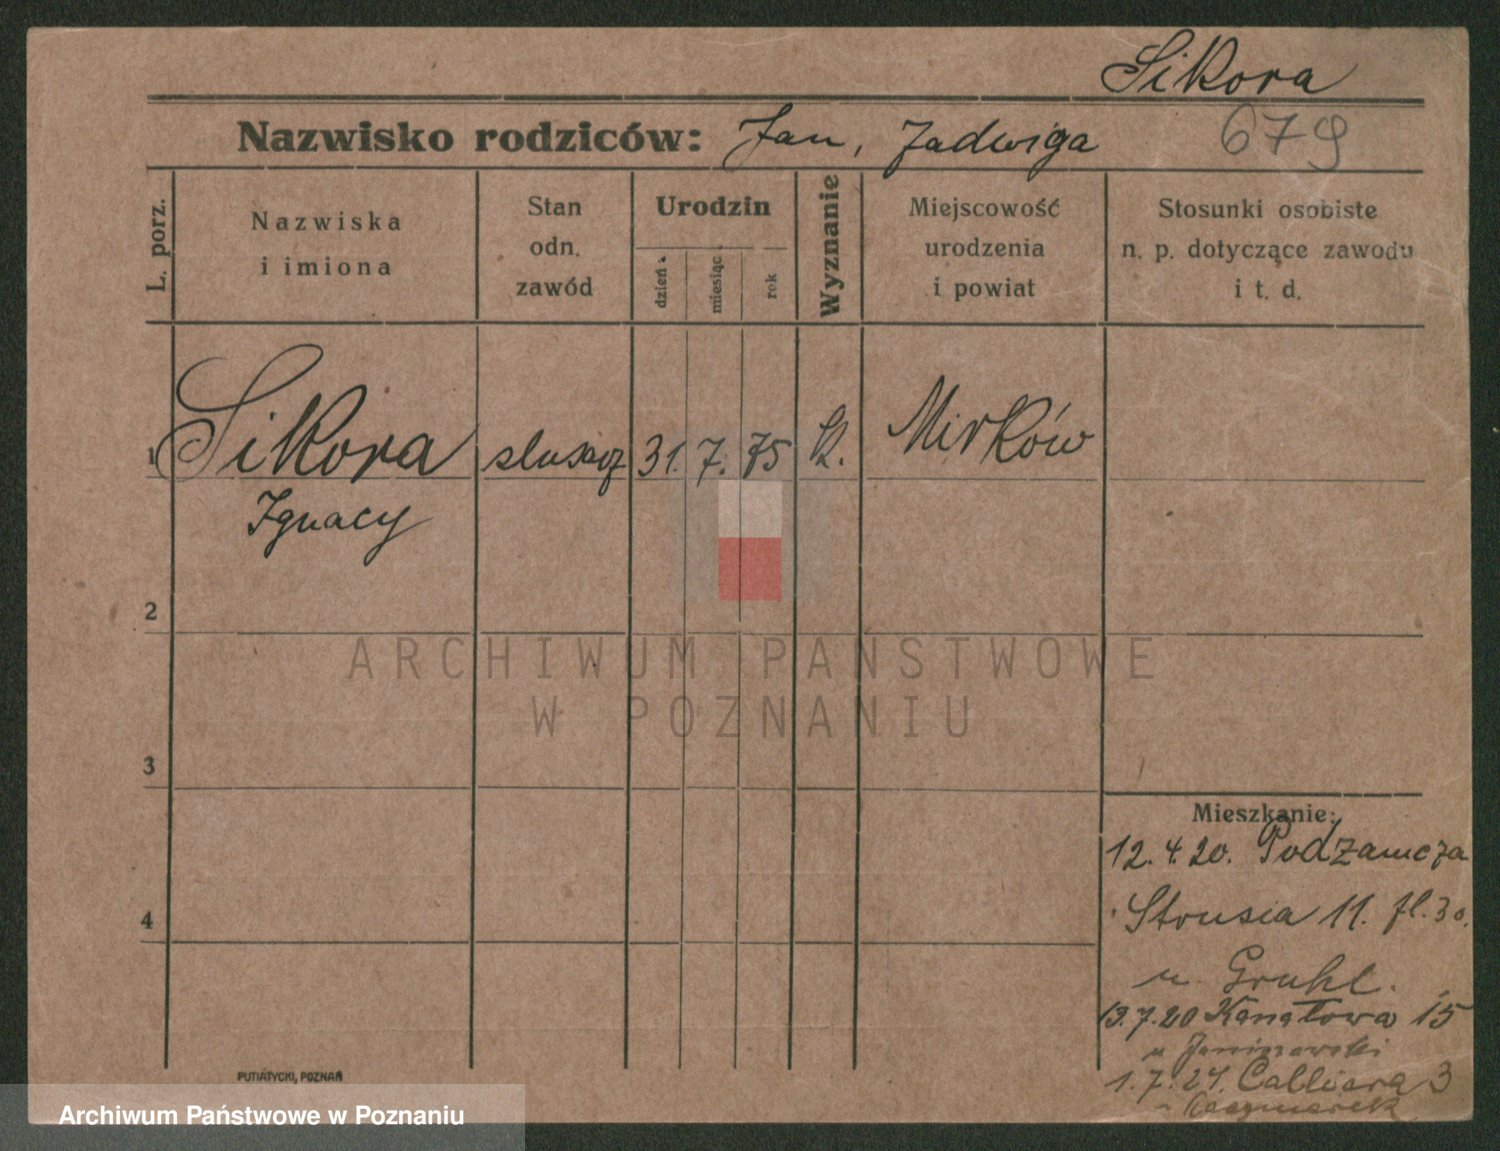 Sikora
Nazwisko rodziców: Jan, Jadwiga 679
L. porz.
Nazwiska
i imiona
Stan
odn.
zawód
Urodzin
dzień
miesiąc
rok
Wyznanie
Miejscowość
urodzenia
i powiat
Stosunki osobiste
n. p. dotyczące zawodu
i t. d.
1 Sikora 31. 7. 75 k. Mirków
Ignacy
2
3
4
ARCHIWUM PAŃSTWOWE
W POZNANIU
Mieszkanie:
12. 4. 20. Podzamcza
Strusia 11.
u Gruhl.
13. 7. 20 Kanałowa 15
u
1. 7. 24. Calliera 3
Kaczmarek
PUTIATYCKI, POZNAŃ
Archiwum Państwowe w Poznaniu